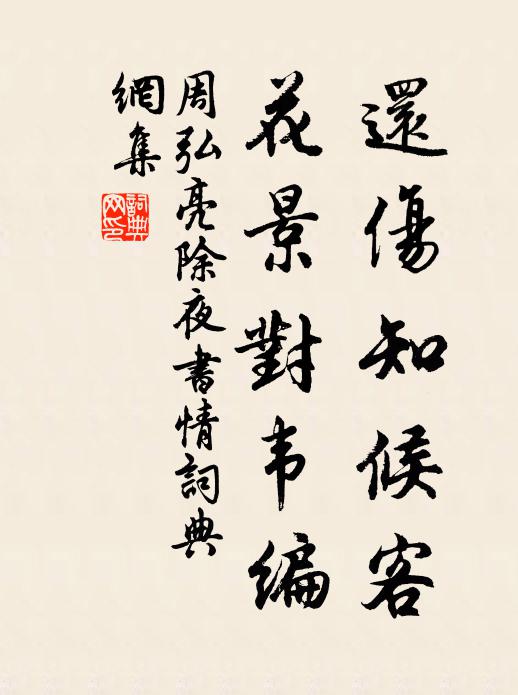 還傷知候客
花景對韦编
周弘亮除夜書情詞典
網集
詞典
网印